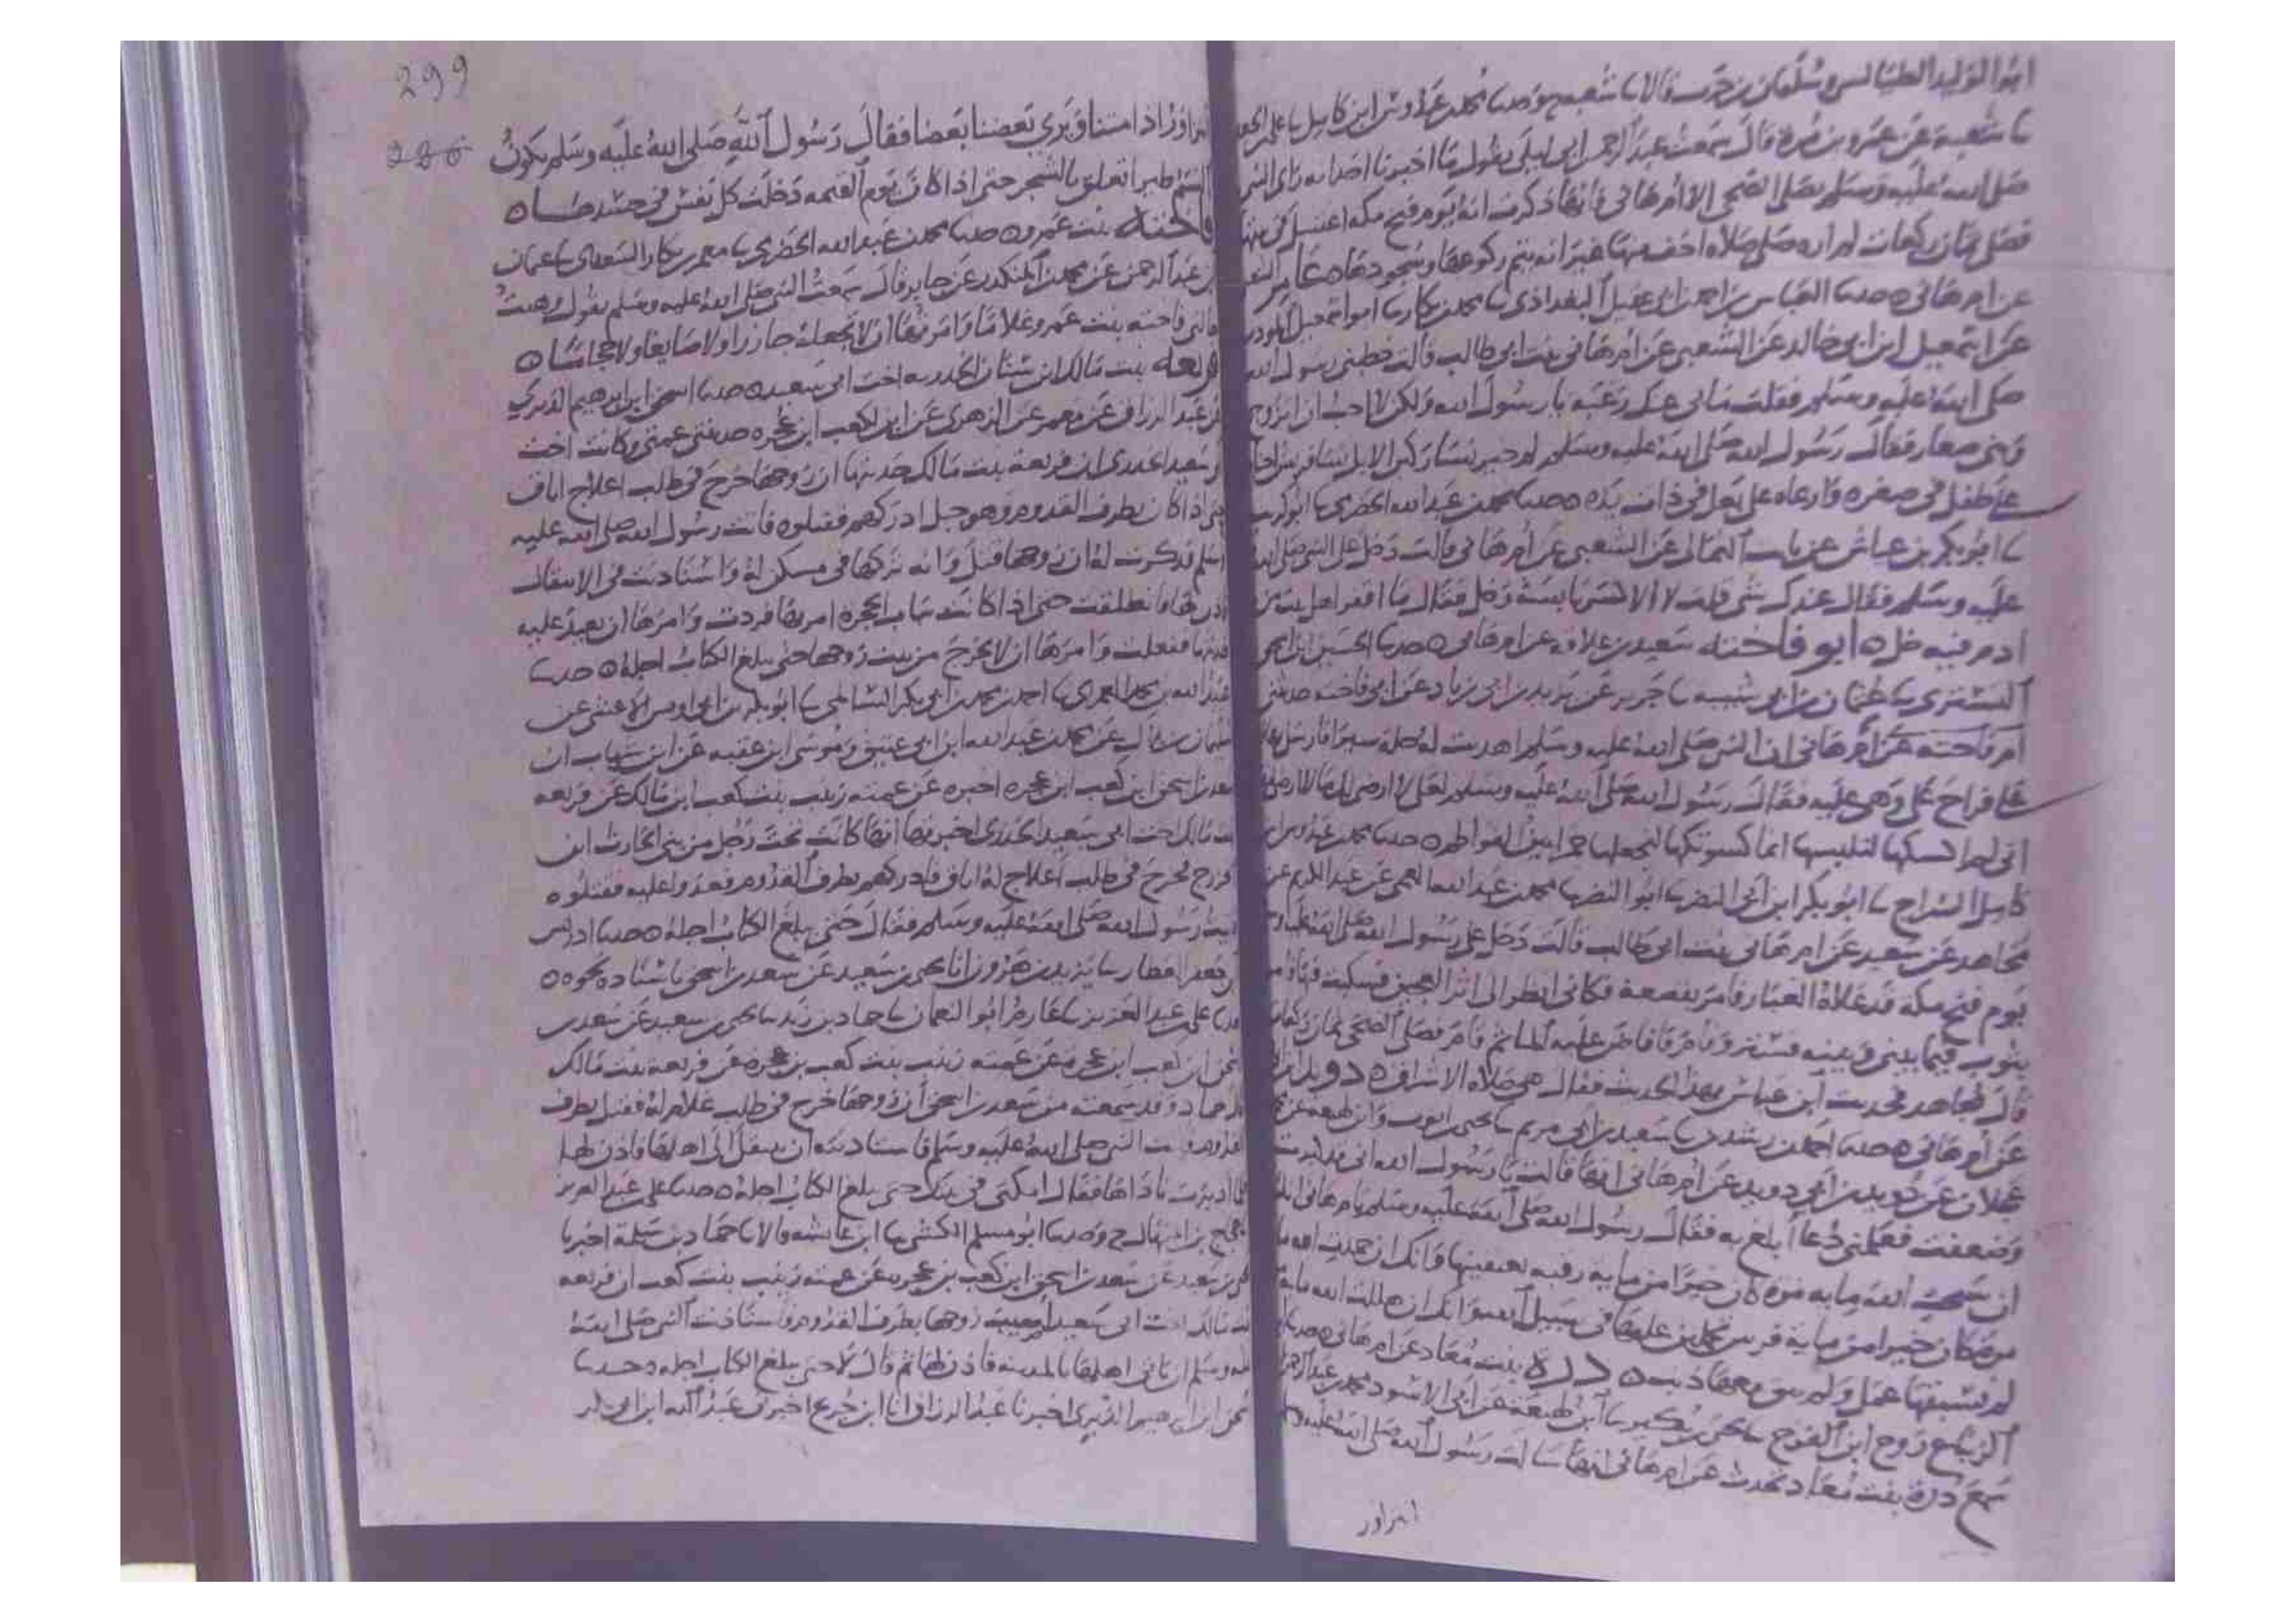 ابو الوليد الطيالسى وسليمان بن حرب قالا نا شعبة ح وحدثنا محمد بن عبدوس ابن كامل نا على بن الجعد
نا شعبة عن عمرو بن مرة قال سمعت عبد الرحمن بن ابى ليلى يقول ما اخبرنا احد انه راى النبى
صلى الله عليه وسلم يصلى الضحى الا ام هانى فانها ذكرت انه يوم فتح مكة اغتسل فى بيتها
فصلى ثمان ركعات لم اره صلى صلاة اخف منها غير انه يتم ركوعها وسجودها ه عامر الشعبى
عن ام هانى ه حدثنا العباس بن احمد بن ابى عقيل البغدادى نا محمد بن بكار نا
عن اسمعيل ابن ابى خالد عن الشعبى عن ام هانى بنت ابى طالب قالت خطبنى رسول الله
صلى الله عليه وسلم فقلت ما بى عنك رغبة يا رسول الله ولكن لا احب ان اتزوج
وبنى صغار فقال رسول الله صلى الله عليه وسلم خير نساء ركبن الابل نساء قريش احناه
على طفل فى صغره وارعاه على بعل فى ذات يده ه حدثنا محمد بن عبد الله الحضرمى نا ابو كريب
نا ابو بكر بن عياش عن ثابت الثمالى عن الشعبى عن ام هانى قالت دخل على النبى صلى الله
عليه وسلم فقال عندك شى قلت لا الا كسر يابسة وخل فقال ما اقفر اهل بيت من
ادم فيه خل ه ابو فاختة سعيد بن علاقة عن ام هانى ه حدثنا الحسين بن اسحق
التسترى نا عثمان بن ابى شيبة نا جرير عن يزيد بن ابى زياد عن ابى فاختة حدثتنى
ام هانى ان النبى صلى الله عليه وسلم اهديت له حلة سيرا فارسل بها
على فراح على وهى عليه فقال رسول الله صلى الله عليه وسلم لعلى لا ارضى لك ما لا ارضى
انى لم اكسكها لتلبسها انما كسوتكها لتجعلها خمرا بين الفواطم ه حدثنا محمد بن عبدوس بن
كامل السراج نا ابو بكر ابن ابى النضر نا ابو النضر نا محمد بن عبد الله العمى عن عبد الكريم عن
مجاهد عن سعيد عن ام هانى بنت ابى طالب قالت دخل على رسول الله صلى الله عليه وسلم
يوم فتح مكة قد علاه الغبار فامر بقصعة فكانى انظر الى اثر العجين فسكبت
بثوب فيما بينى وبينه فستر وامر فافاض عليه الماء ثم قام فصلى الضحى ثمان ركعات
قال مجاهد فحدثت ابن عباس بهذا الحديث فقال هى صلاة الاشراق ه دويد
عن ام هانى ه حدثنا احمد بن رشدين نا سعيد بن ابى مريم نا يحيى بن ايوب وابن لهيعة عن
عجلان عن دويد بن ابى دويد عن ام هانى انها قالت يا رسول الله انى قد كبرت
وضعفت فعلمنى دعا ابلغ به فقال رسول الله صلى الله عليه وسلم يا ام هانى
ان سبحت الله مايه مرة كان خيرا من مايه رقبة تعتقينها وانك ان حمدت الله مايه
مرة كان خيرا من مايه فرس تحملين عليها فى سبيل الله وانك ان هللت الله مايه
لم يسبقها عمل ولم يبق معها ذنب ه درة بنت معاذ عن ام هانى ه حدثنا
الزنباع روح ابن الفرج نا يحيى بن بكير نا ابن لهيعة عن ابى الاسود محمد بن عبد الرحمن
سمع درة بنت معاذ تحدث عن ام هانى انها سالت رسول الله صلى الله عليه
انزاور
299
انتزاور اذا متنا ويرى بعضنا بعضا فقال رسول الله صلى الله عليه وسلم يكون
النسم طيرا تعلق بالشجر حتى اذا كان يوم القيمة دخلت كل نفس فى جسدها ه
فاختة بنت عمرو ه حدثنا محمد بن عبد الله الحضرمى نا معمر بن بكار السعدى نا عثمان
بن عبد الرحمن عن محمد بن المنكدر عن جابر قال سمعت النبى صلى الله عليه وسلم يقول وهبت
خالتى فاختة بنت عمرو غلاما وامرتها ان لا تجعله جازرا ولا صايغا ولا حجاما ه
فريعة بنت مالك ابن سنان الخدرية اخت ابى سعيد ه حدثنا اسحق ابن ابرهيم الدبرى
عن عبد الرزاق عن معمر عن الزهرى عن ابن لكعب ابن عجرة حدثتنى عمتى وكانت تحت
ابى سعيد الخدرى ان فريعة بنت مالك حدثتها ان زوجها خرج فى طلب اعلاج اباق
حتى اذا كان بطرف القدوم وهو جبل ادركهم فقتلوه فاتت رسول الله صلى الله عليه
وسلم فذكرت له ان زوجها قتل وانه تركها فى مسكن له واستاذنت فى الانتقال
فاذن لها فانطلقت حتى اذا كانت بباب الحجرة امر بها فردت وامرها ان تعيد عليه
حديثها ففعلت وامرها ان لا تخرج من بيت زوجها حتى يبلغ الكتاب اجله ه حدثنا
عبد الله بن محمد العمرى نا ابو بكر بن ابى اويس عن
سليمان بن بلال عن محمد بن عبد الله ابن ابى عتيق وموسى ابن عقبة عن ابن شهاب ان
سعد بن اسحق ابن كعب ابن عجرة اخبره عن عمته زينب بنت كعب ابن مالك عن فريعة
بنت مالك اخت ابى سعيد الخدرى اخبرتها انها كانت تحت رجل من بنى الحارث ابن
الخزرج فخرج فى طلب اعلاج له اباق فادركهم بطرف القدوم فعدوا عليه فقتلوه
فاتت رسول الله صلى الله عليه وسلم فقال حتى يبلغ الكتاب اجله ه حدثنا ادريس
بن جعفر العطار نا يزيد بن هرون انا يحيى بن سعيد عن سعد بن اسحق باسناده نحوه ه
حدثنا على بن عبد العزيز نا عارم ابو النعمان نا حماد بن زيد نا يحيى بن سعيد عن سعد بن
اسحق ابن كعب ابن عجرة عن عمته زينب بنت كعب بن عجرة عن فريعة بنت مالك
قال حماد وقد سمعته من سعد بن اسحق ان زوجها خرج فى طلب غلام له فقتل بطرف
القدوم فاتت النبى صلى الله عليه وسلم فاستاذنته ان تنتقل الى اهلها فاذن لها
فلما ادبرت ناداها فقال امكثى فى بيتك حتى يبلغ الكتاب اجله ه حدثنا على بن عبد العزيز
نا حجاج بن المنهال ح وحدثنا ابو مسلم الكشى نا ابن عايشة قالا نا حماد بن سلمة اخبرنا
يحيى بن سعيد عن سعد بن اسحق ابن كعب بن عجرة عن عمته زينب بنت كعب ان فريعة
بنت مالك اخت ابى سعيد اصيب زوجها بطرف القدوم فاستاذنت النبى صلى الله
عليه وسلم ان تاتى اهلها بالمدينة فاذن لها ثم قال لا حتى يبلغ الكتاب اجله وحدثنا
اسحق ابن ابرهيم الدبرى اخبرنا عبد الرزاق انا ابن جريج اخبرنى عبد الله ابن ابى بكر